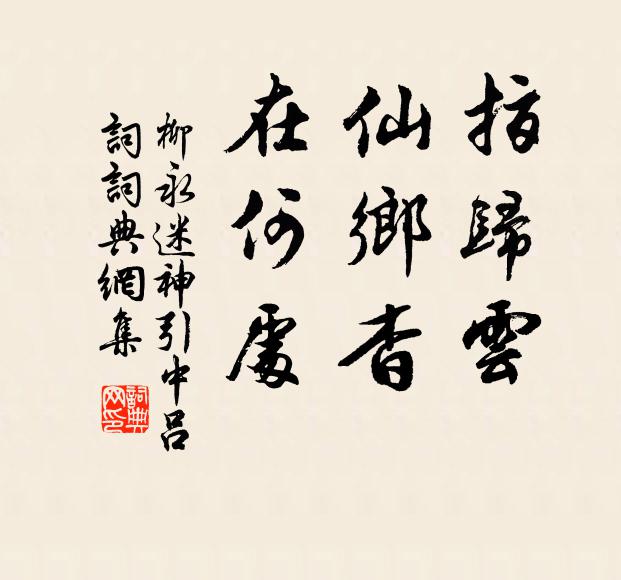 指歸雲
仙鄉杳
在何處
柳永迷神引中呂
詞詞典網集
詞典网印